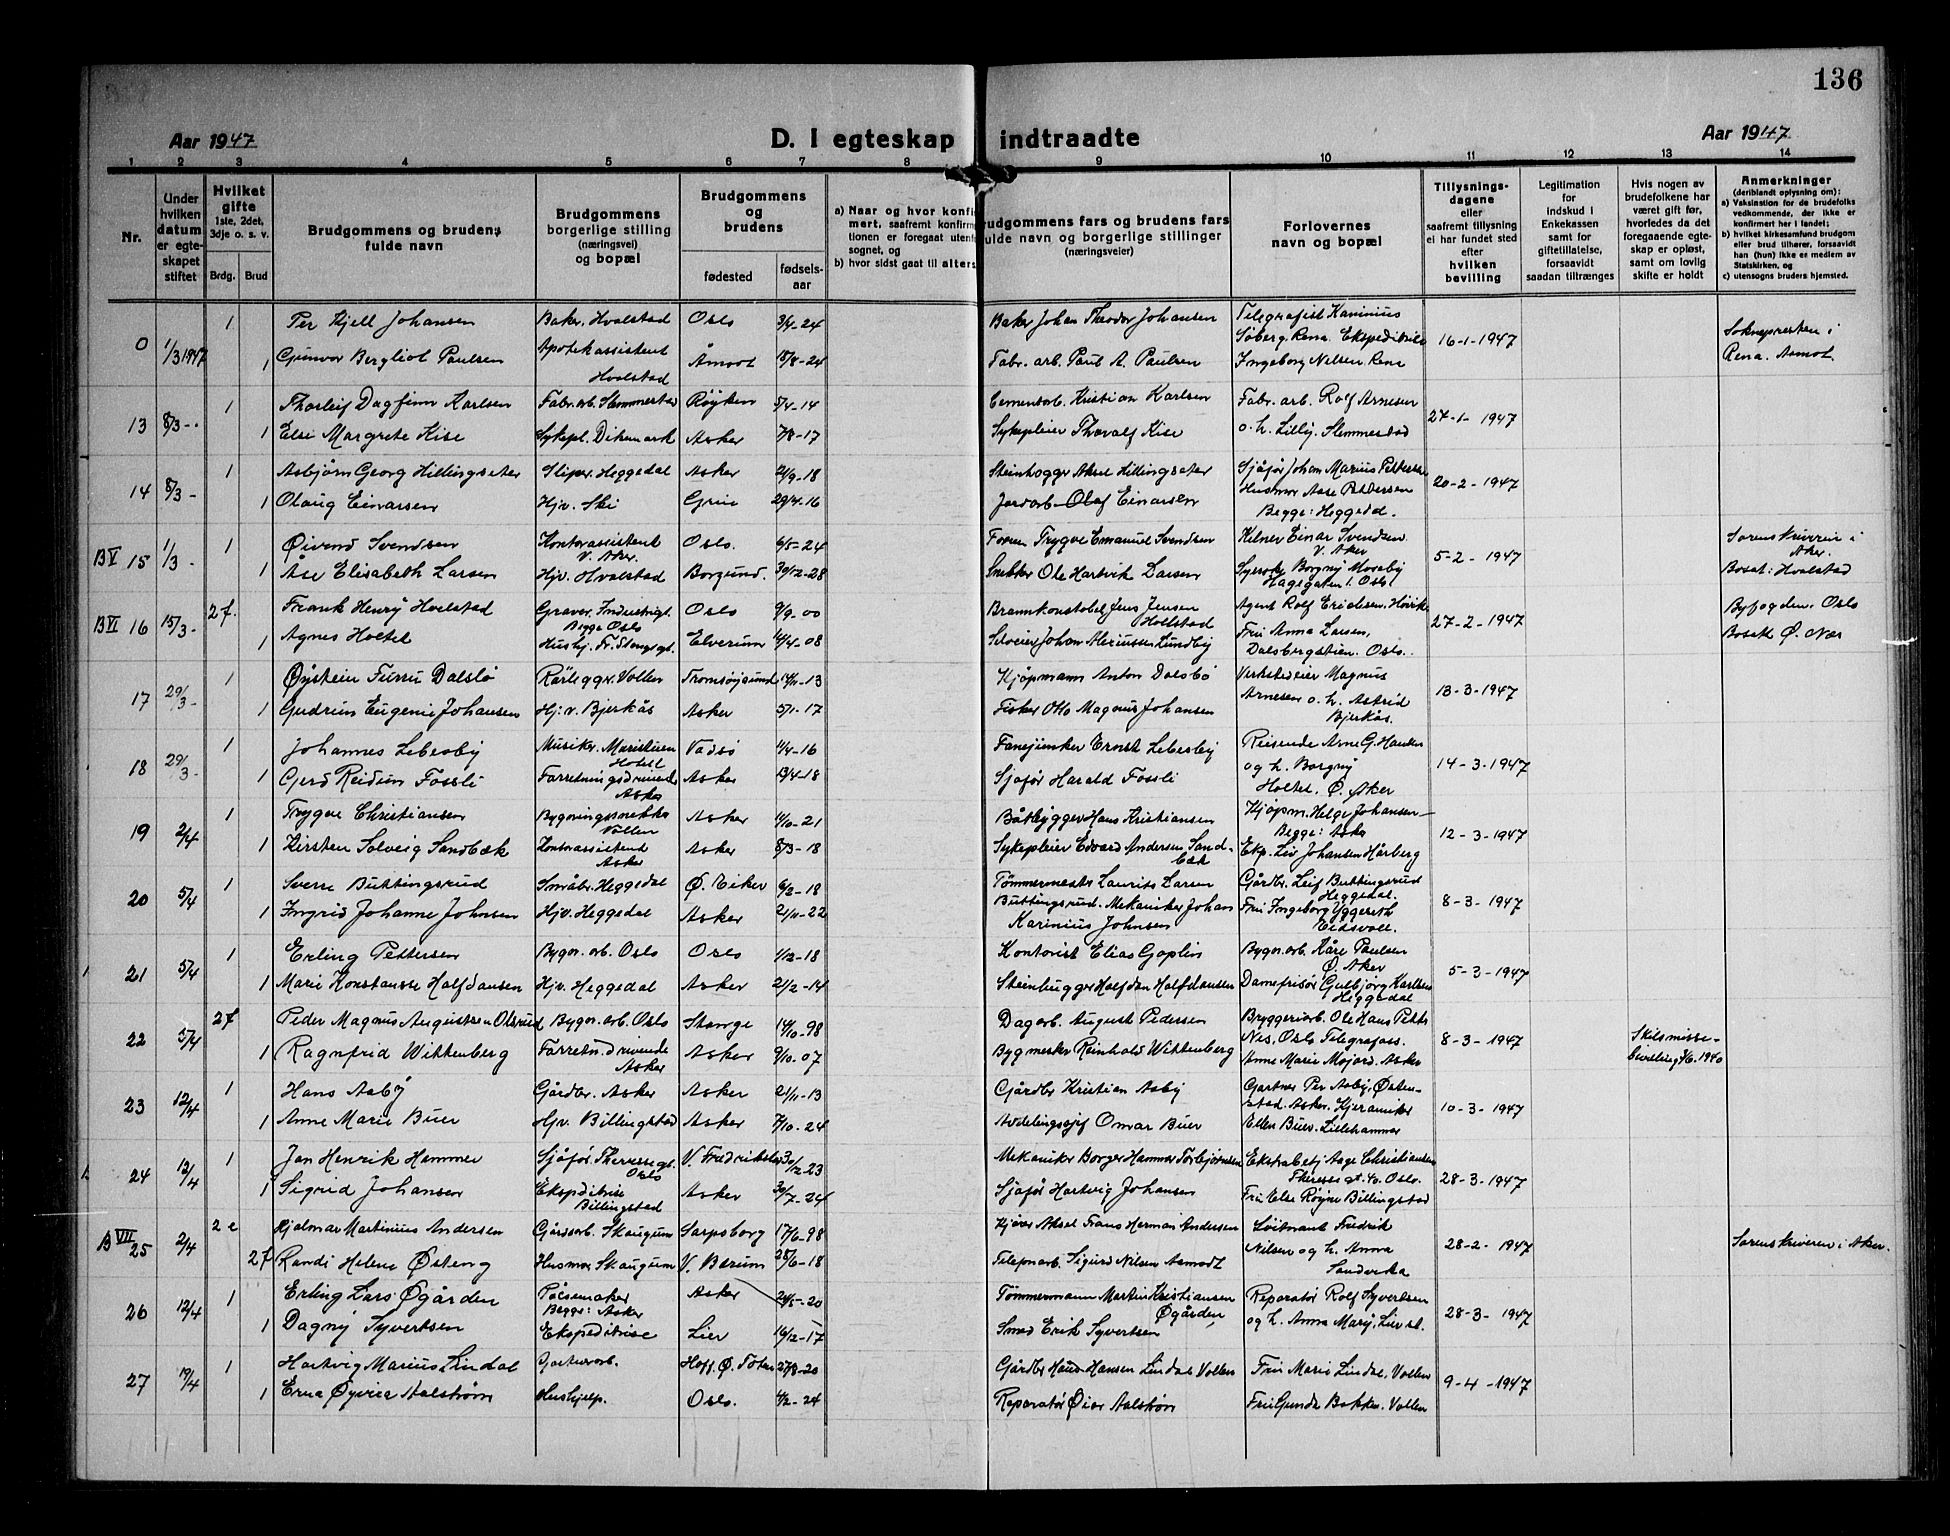 136
Aar 1947
D. I egteskap indtraadte
Aar 1947
1 2 3 4 5 6 7 8 9 10 11 12 13 14
Nr.
Under hvilken datum er egteskapet stiftet
Hvilket gifte
1ste, 2det, 3dje o. s. v.
Brdg. Brud
Brudgommens og brudens fulde navn
Brudgommens borgerlige stilling (næringsvei) og bopæl
Brudgommens og brudens
fødested fødselsaar
a) Naar og hvor konfi
mert, saafremt konfirm
tionen er foregaat utenf
sognet, og
b) hvor sidst gaat til alters
udgommens fars og brudens fars
fulde navn og borgerlige stillinger
(næringsveier)
Forlovernes navn og bopæl
Tillysningsdagene eller saafremt tillysning ei har fundet sted efter hvilken bevilling
Legitimation for Indskud i Enkekassen samt for giftetillatelse, forsaavidt saadan tiltrænges
Hvis nogen av brudefolkene har været gift før, hvorledes da det foregaaende egteskap er opløst, samt om lovlig skifte er holdt
Anmerkninger
(deriblandt oplysning om):
a) Vaksination for de brudefolks vedkommende, der ikke er konfirmert her i landet;
b) hvilket kirkesamfund brudgom eller brud tilhører, forsaavidt han (hun) ikke er medlem av Statskirken, og
c) utensogns bruders hjemsted.
0 1/3 1947 1 Per Kjell Johansen Baker. Hvalstad Oslo 3/4-24 Baker Johan Theodor Johansen Telegrafist Kaminius
Søberg Rena. Ekspeditrise 16-1-1947 Soknepresten i
1 Gunvor Bergliot Paulsen Apotekassistent Hvalstad Åmot 18/8-24 Fabr. arb. Paul A. Paulsen Ingeborg Nilsen Rena Rena. Aamot
13 8/3 - 1 Thorleif Dagfinn Karlsen Fabr. arb. Slemmestad Røyken 5/4-14 Cementarb. Kristian Karlsen Fabr. arb. Rolf Arnesen 27-1-1947
1 Else Margrete Kise Sykepl. Dikemark Asker 7/8-17 Sykepleier Thoralf Kise o. h. Lilly. Slemmestad
14 8/3 - 1 Asbjørn Georg Hillingseter Sliper. Heggedal Asker 21/9-18 Steinhogger Aksel Hillingseter Sjåfør Johan Marius Pettersen 20-2-1947
1 Olaug Einarsen Hjv. Ski Grue 29/4-16 Jordarb. Olaf Einarsen Husmor Aase Pettersen
Begge: Heggedal.
B V 15 1/3 - 1 Øivend Svendsen Kontorassistent V. Aker. Oslo. 6/5-24 Trygve Emanuel Svendsen Kelner Einar Svendsen V. Aker 5-2-1947 Sorenskriveren i Aker.
1 Åse Elisabeth Larsen Hjv. Hvalstad Borgund. 30/12-28 Snekker Ole Hartvik Larsen Borgny Moseby
Hagegaten 1. Oslo Bosat: Hvalstad
B VI 16 15/3 - 2 f. Frank Henry Hvelstad Graver. Industrigt. Begge Oslo Oslo 9/9-00 Brannkonstabel Jens Jensen Agent Rolf Ericksen. Høvik 27-2-1947 Byfogden. Oslo
1 Agnes Holtet Hushj. Elverum 14/4-08 Johan Lundby Fru Anna Larsen,
Dalsbergstien. Oslo. Bosatt Ø.
17 29/3 - 1 Øystein Furru Dalslø Rørleggr. Vollen Tromsøysund 14/11-13 Kjøpmann Anton Dalsbø Verkstedeier Magnus 13-3-1947
1 Gudrun Eugenie Johansen Hj.v. Bjerkås Asker 5/1-17 Fisker Otto Magnus Johansen Arnesen o. h. Astrid
Bjerkås.
18 29/3 - 1 Johannes Lebesby Musiker. Hotell Vadsø 11/4-16 Fanejunker Ernst Lebesby Reisende Arne G. 14-3-1947
1 Gerd Reidun Fossli Forretningsdrivende Asker Asker 13/4-18 Sjåfør Harald Fossli og h. Borgny
Holtet, Ø. Aker
19 2/4 1 Trygve Christiansen Vollen Asker 11/10-21 Båtbygger Hans Kristiansen Kjøpm. Helge Johansen
Begge: Asker 12-3-1947
1 Kirsten Solveig Sandbæk Kontorassistent Asker Asker 8/3-18 Sykepleier Edvard Andersen Sandbæk Eksp. Liv Johansen Hårberg
20 5/4 1 Sverre Buttingsrud Småbr. Heggedal Ø. Eiker 6/2-18 Tømmermester Laurits Larsen Gårdbr. Leif Buttingsrud
Heggedal. 8-3-1947
1 Ingrid Johanne Johnsen Hjv. Heggedal Asker 21/11-22 Buttingsrud. Mekaniker Johan Fru Ingeborg Yggeseth
Karinius Johnsen Eidsvoll.
21 5/4 1 Erling Pettersen Bygn. arb. Oslo Oslo 1/12-18 Kontorist Elias Goplin Bygn. arb. Kåre Paulsen
Ø. Aker 5-3-1947
1 Marie Konstanse Halfdansen Hjv. Heggedal Asker 21/2-14 Steinhugger Halfdan Halfdansen Damefrisør Gulbjørg Karlsen
Heggedal
22 5/4 2 f Peder Magnus Augustsen Olsrud Bygn. arb. Oslo Stange 14/10-98 Dagarb. August Pedersen Bryggeriarb. Ole Hans Petter 8-3-1947 Skilsmisse-
1 Ragnfrid Wittenberg Forretn. drivende Asker Asker 9/10-07 Bygmester Reinhold Wittenberg Nes, Oslo Telegrafass. bevilling 1940
Anne Marie Mojord. Asker
23 12/4 1 Hans Aaby Gårdbr. Asker Asker 21/11-13 Gårdbr Kristian Aaby Gartner Per Aaby, Østen-
stad. Asker. Kjeramiker 10-3-1947
1 Anne Marie Buer Hjv. Billingstad Asker 7/10-24 Avdelingssjef Omar Buer Ellen Buer. Lillehammer
24 12/4 1 Jan Henrik Hammer Sjåfør. Theresegt. Oslo V. Fredrikstad 30/12 23 Mekaniker Borger Hammer Torbjørnsen Ekstrabetj Aage Christiansen
Theresegt. 40. Oslo. 28-3-1947
1 Sigrid Johansen Ekspeditrise Billingstad Asker 30/7-24 Sjåfør Hartvig Johansen Fru Else Røyne Billingstad
B VII 25 2/4 2 e Hjalmar Martinius Andersen Gårdsarb. Skaugum Sarpsborg 17/6-98 Kjører Aksel Frans Herman Andersen Løitnant Fredrik 28-2-1947 Sorenskriveren i Aker.
2 f Randi Helene Østeng Husmor Skaugum V. Bærum 28/6-18 Telefonarb. Sigurd Nilsen Aamodt Nilsen og h. Anna
Sandvika
26 12/4 1 Erling Lars Øgården Pølsemaker Begge: Asker Asker 24/5-20 Tømmermann Martin Kristiansen Øgården Reparatør Rolf Syvertsen 28-3-1947
1 Dagny Syvertsen Ekspeditrise Lier 16/12-17 Smed Erik Syvertsen og h. Anna Mary, Lier st.
27 19/4 1 Hartvig Marius Lindal Gartnerarb. Hoff. Ø. Toten 27/8-20 Gårdbr Hans Hansen Lindal Vollen Fru Marie Lindal, Vollen 9-4-1947
1 Erna Øyvica Aalstrøm Hushjelp. Oslo. 4/2-24 Reparatør Øivr Aalstrøm Fru Gunda Bakken. Vollen